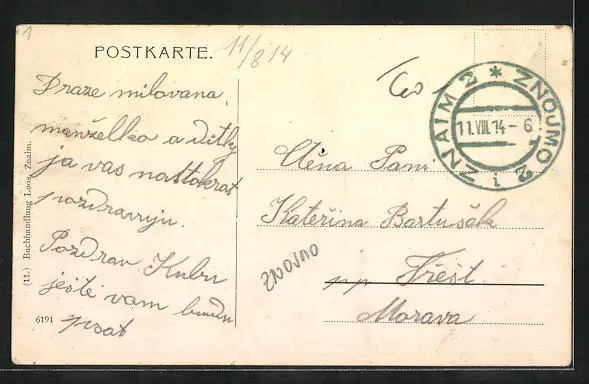 1
POSTKARTE.
11/8 14
Draze milovana
manželko a ditky
ja vas nastokrat
pozdravuju.
Pozdrav Kubu
ješte vam budu
psat
(11.) Buchhandlung Loos, Znaim.
6191
ZNAIM 2 * ZNOJMO 2
11.VIII.14-6
i
Ctěna Pani
Kateřina Bartušák
Znojmo
pp Třešť
Morava